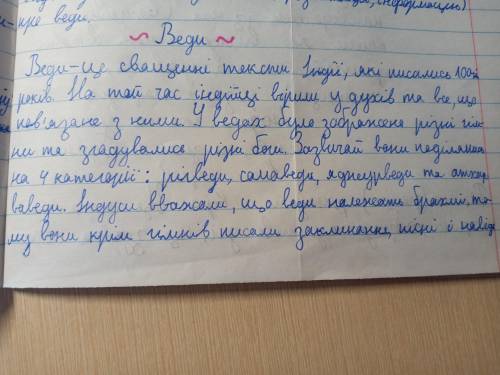 про веди.
~ Веди ~
Веди-це священні тексти Індії, які писались 1000
років. На той час індійці вірили у духів та все, що
пов'язане з ними. У ведах було зображено різні гім-
ни та згадувались різні боги. Зазвичай вони поділялися
на 4 категорії: рігведи, самаведи, яджурведи та атхар
ваведи. Індуси вважали, що веди належать брахмі, то-
му вони крім гімнів писали заклинання, пісні і навіть